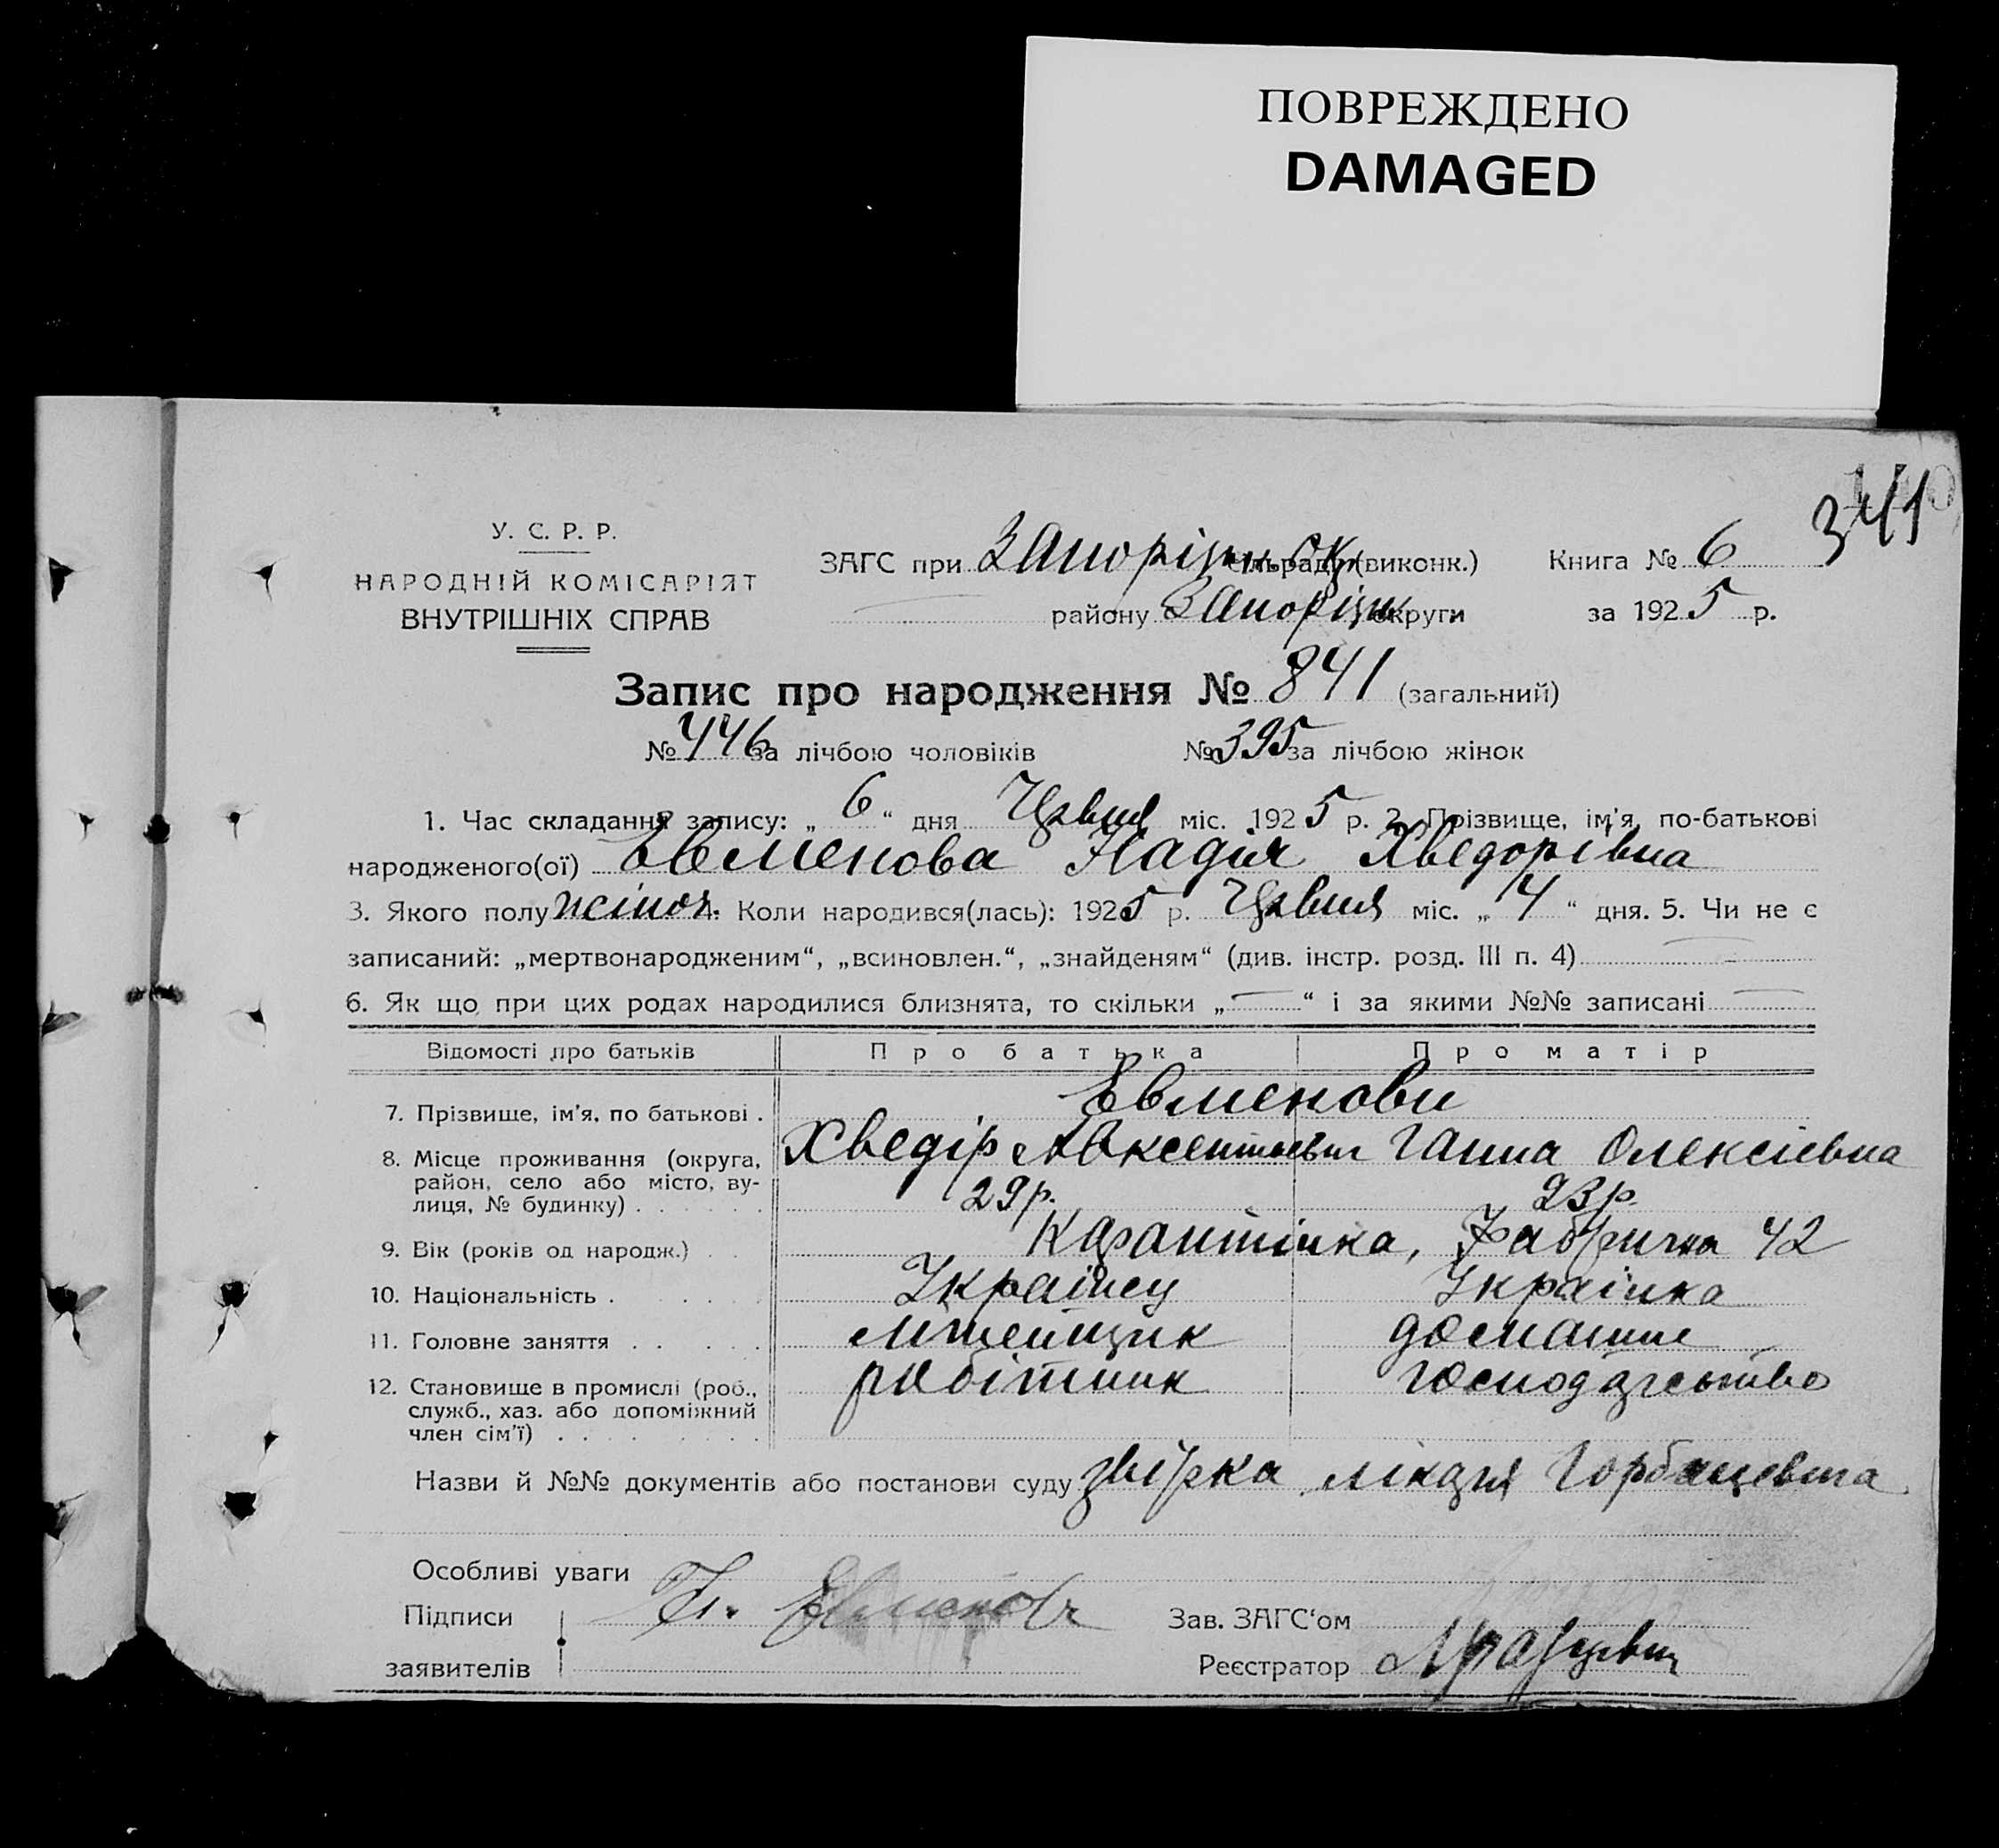 ПОВРЕЖДЕНО
DAMAGED
341
У. С. Р. Р.
НАРОДНІЙ КОМІСАРІЯТ
ВНУТРІШНІХ СПРАВ
ЗАГС при Запоріжск. сільраді (виконк.) Книга № 6
району Запоріжж. округи за 1925 р.
Запис про народження № 841 (загальний)
№ 446 за лічбою чоловіків № 395 за лічбою жінок
1. Час складання запису: „ 6 “ дня Червня міс. 1925 р. 2. Прізвище, ім’я, по-батькові
народженого(ої) Евменова Надія Хведорівна
3. Якого полу жіноч. 4. Коли народився(лась): 1925 р. Червня міс. „ 4 “ дня. 5. Чи не є
записаний: „мертвонародженим“, „всиновлен.“, „знайденям“ (див. інстр. розд. III п. 4)
6. Як що при цих родах народилися близнята, то скільки „ — “ і за якими №№ записані —
Відомості про батьків Про батька Про матір
7. Прізвище, ім’я, по батькові . Евменови
8. Місце проживання (округа, Хведір Авксентієвич Ганна Олексіевна
район, село або місто, ву-
лиця, № будинку) . . . . . . 29 р. 23 р.
9. Вік (років од народж.) . . Карантінка, Фабрична 42
10. Національність . . . . . Украінец Украінка
11. Головне заняття . . . . . литейщик домашне
12. Становище в промислі (роб., робітник господарство
служб., хаз. або допоміжний
член сім’ї) . . . . . . . .
Назви й №№ документів або постанови суду звірка лікаря Горбацевича
Особливі уваги
Підписи Евменов Зав. ЗАГС‘ом
заявителів Реєстратор